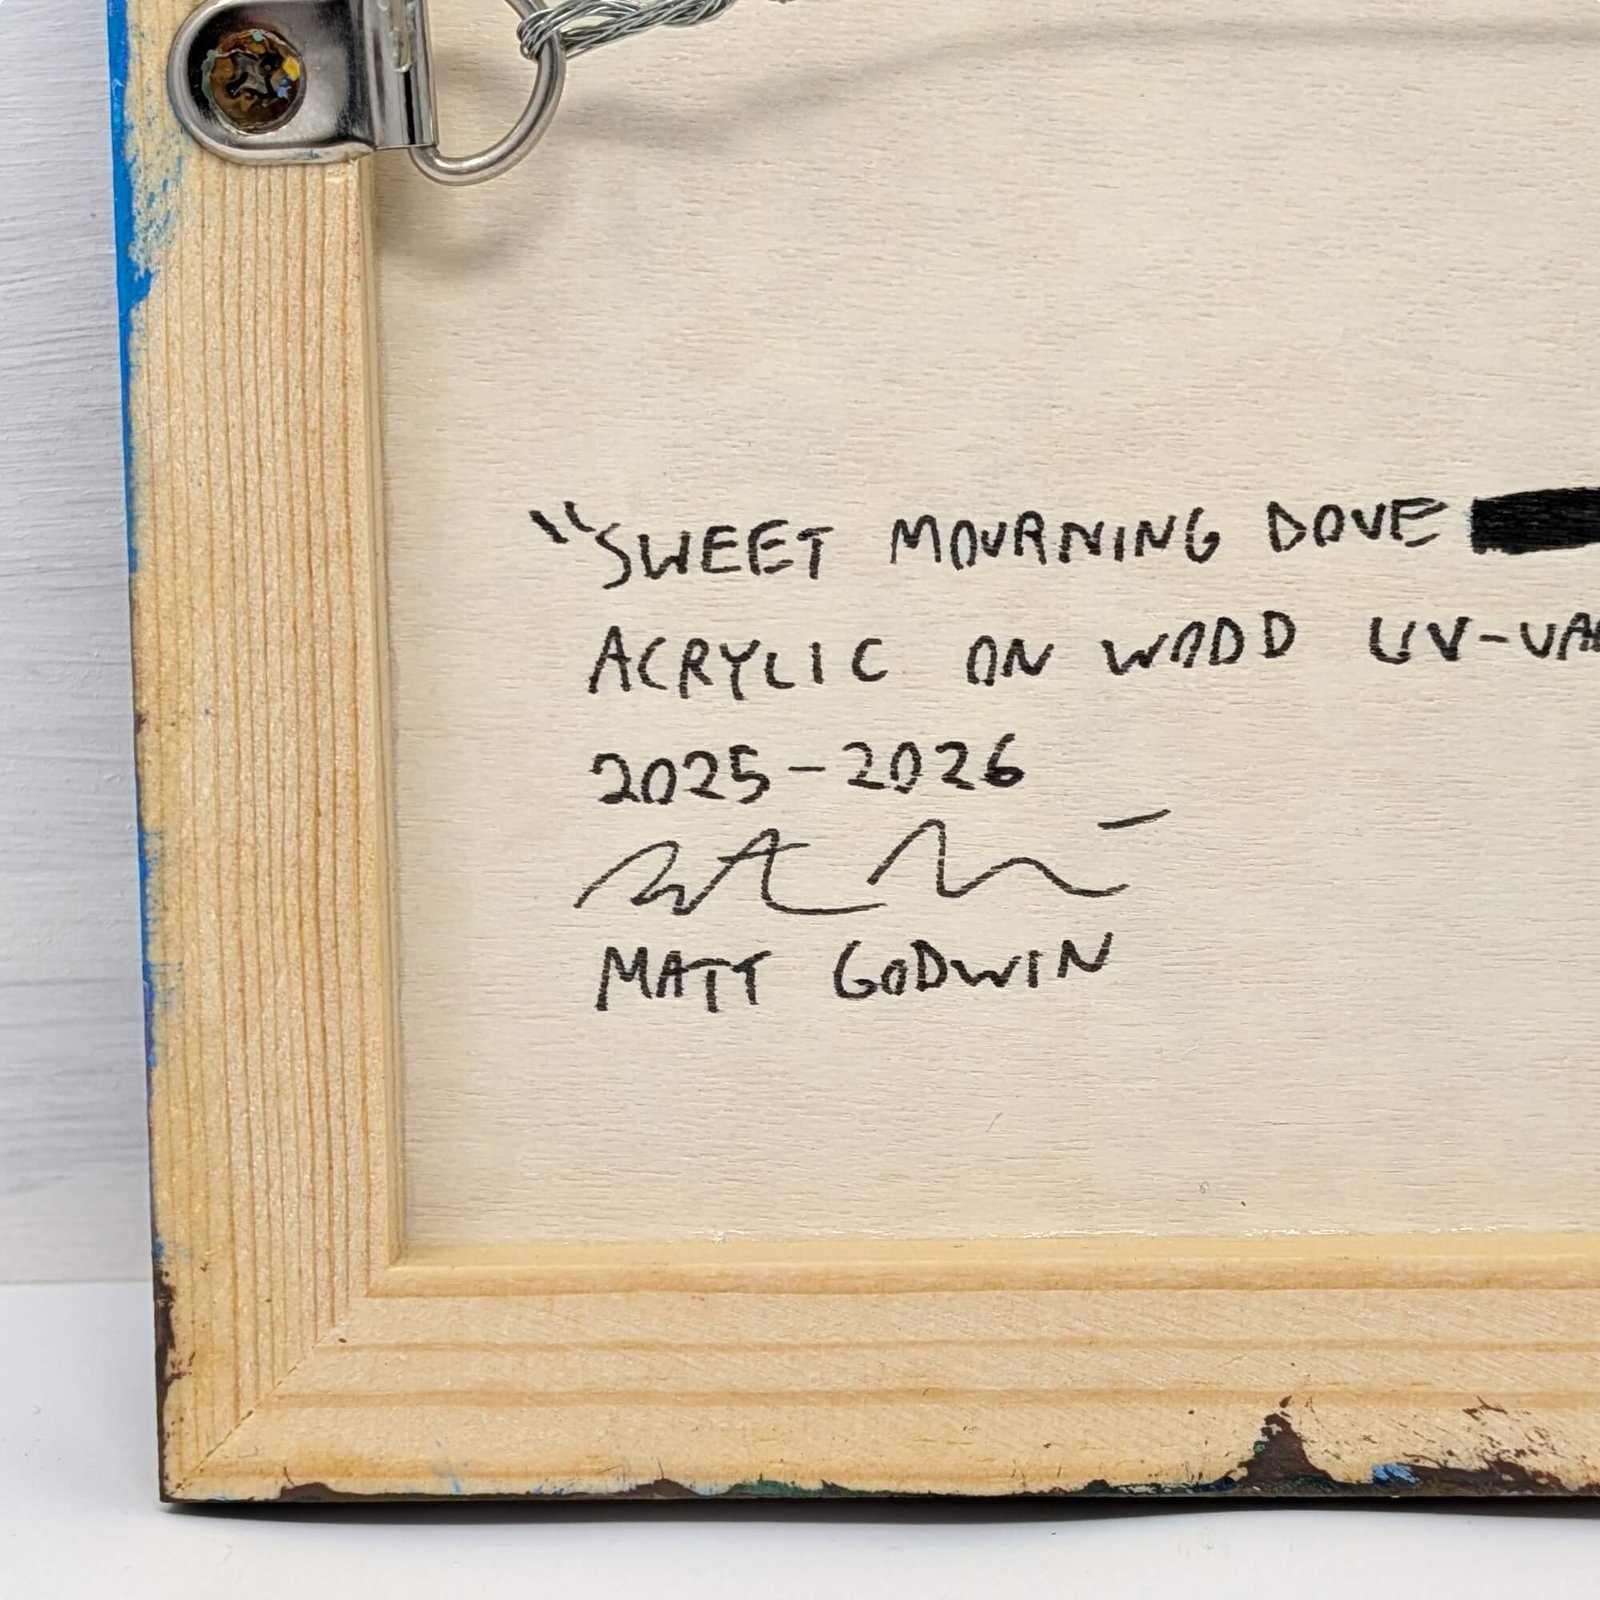 "SWEET MOURNING DOVE
ACRYLIC ON WOOD UV-VA
2025-2026
MATT GODWIN